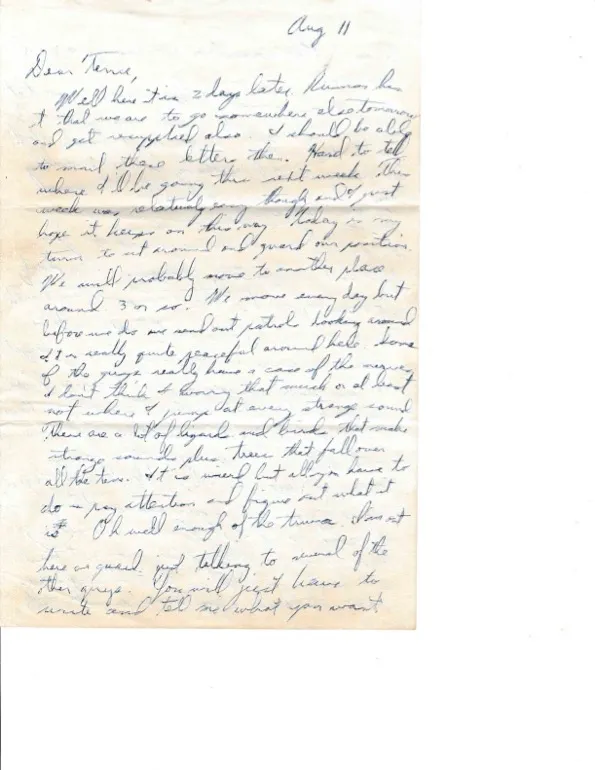 Aug 11
Dear Terrie,
Well here it is 2 days later. Rumor has
it that we are to go somewhere else tomorrow
and get resupplied also. I should be able
to mail these letters then. Hard to tell
where I'll be going this next week. This
week was relatively easy though and I just
hope it keeps on this way. Today is my
turn to sit around and guard our position.
We will probably move to another place
around 3 or so. We move every day but
before we do we send out patrols looking around
It is really quite peaceful around here. Some
of the guys really have a case of the nerves
I don't think I worry that much or at least
not where I jump at every strange sound
There are a lot of lizards and birds that make
strange sounds plus trees that fall over
all the time. It is weird but all you have to
do is pay attention and figure out what it
is. Oh well enough of the I'm out
here on guard just talking to several of the
other guys. You will just have to
write and tell me what you want